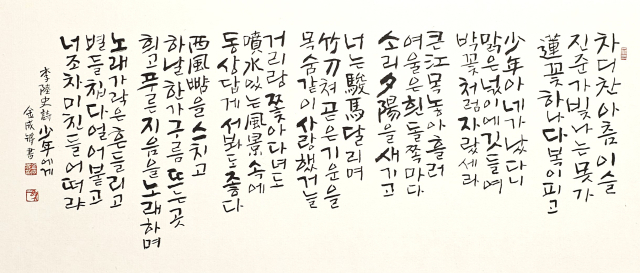 차디찬아츰이슬
진준가빛나는못가
蓮꽃하나다복이피고
少年아네가났다니
맑은넋이에깃들여
박꽃처럼자랐세라
큰江목놓아흘러
여울은흰돌쪽마다
소리夕陽을새기고
너는駿馬달리며
竹刀져곧은기운을
목숨같이사랑했거늘
거리랑쫓아다녀도
噴水있는風景속에
동상답게서봐도좋다
西風뺨을스치고
하날한가구름뜨는곳
희고푸른지음을노래하며
노래가락은흔들리고
별들칩다얼어붙고
너조차미친들어떠랴
李陸史詩 少年에게
金成 書